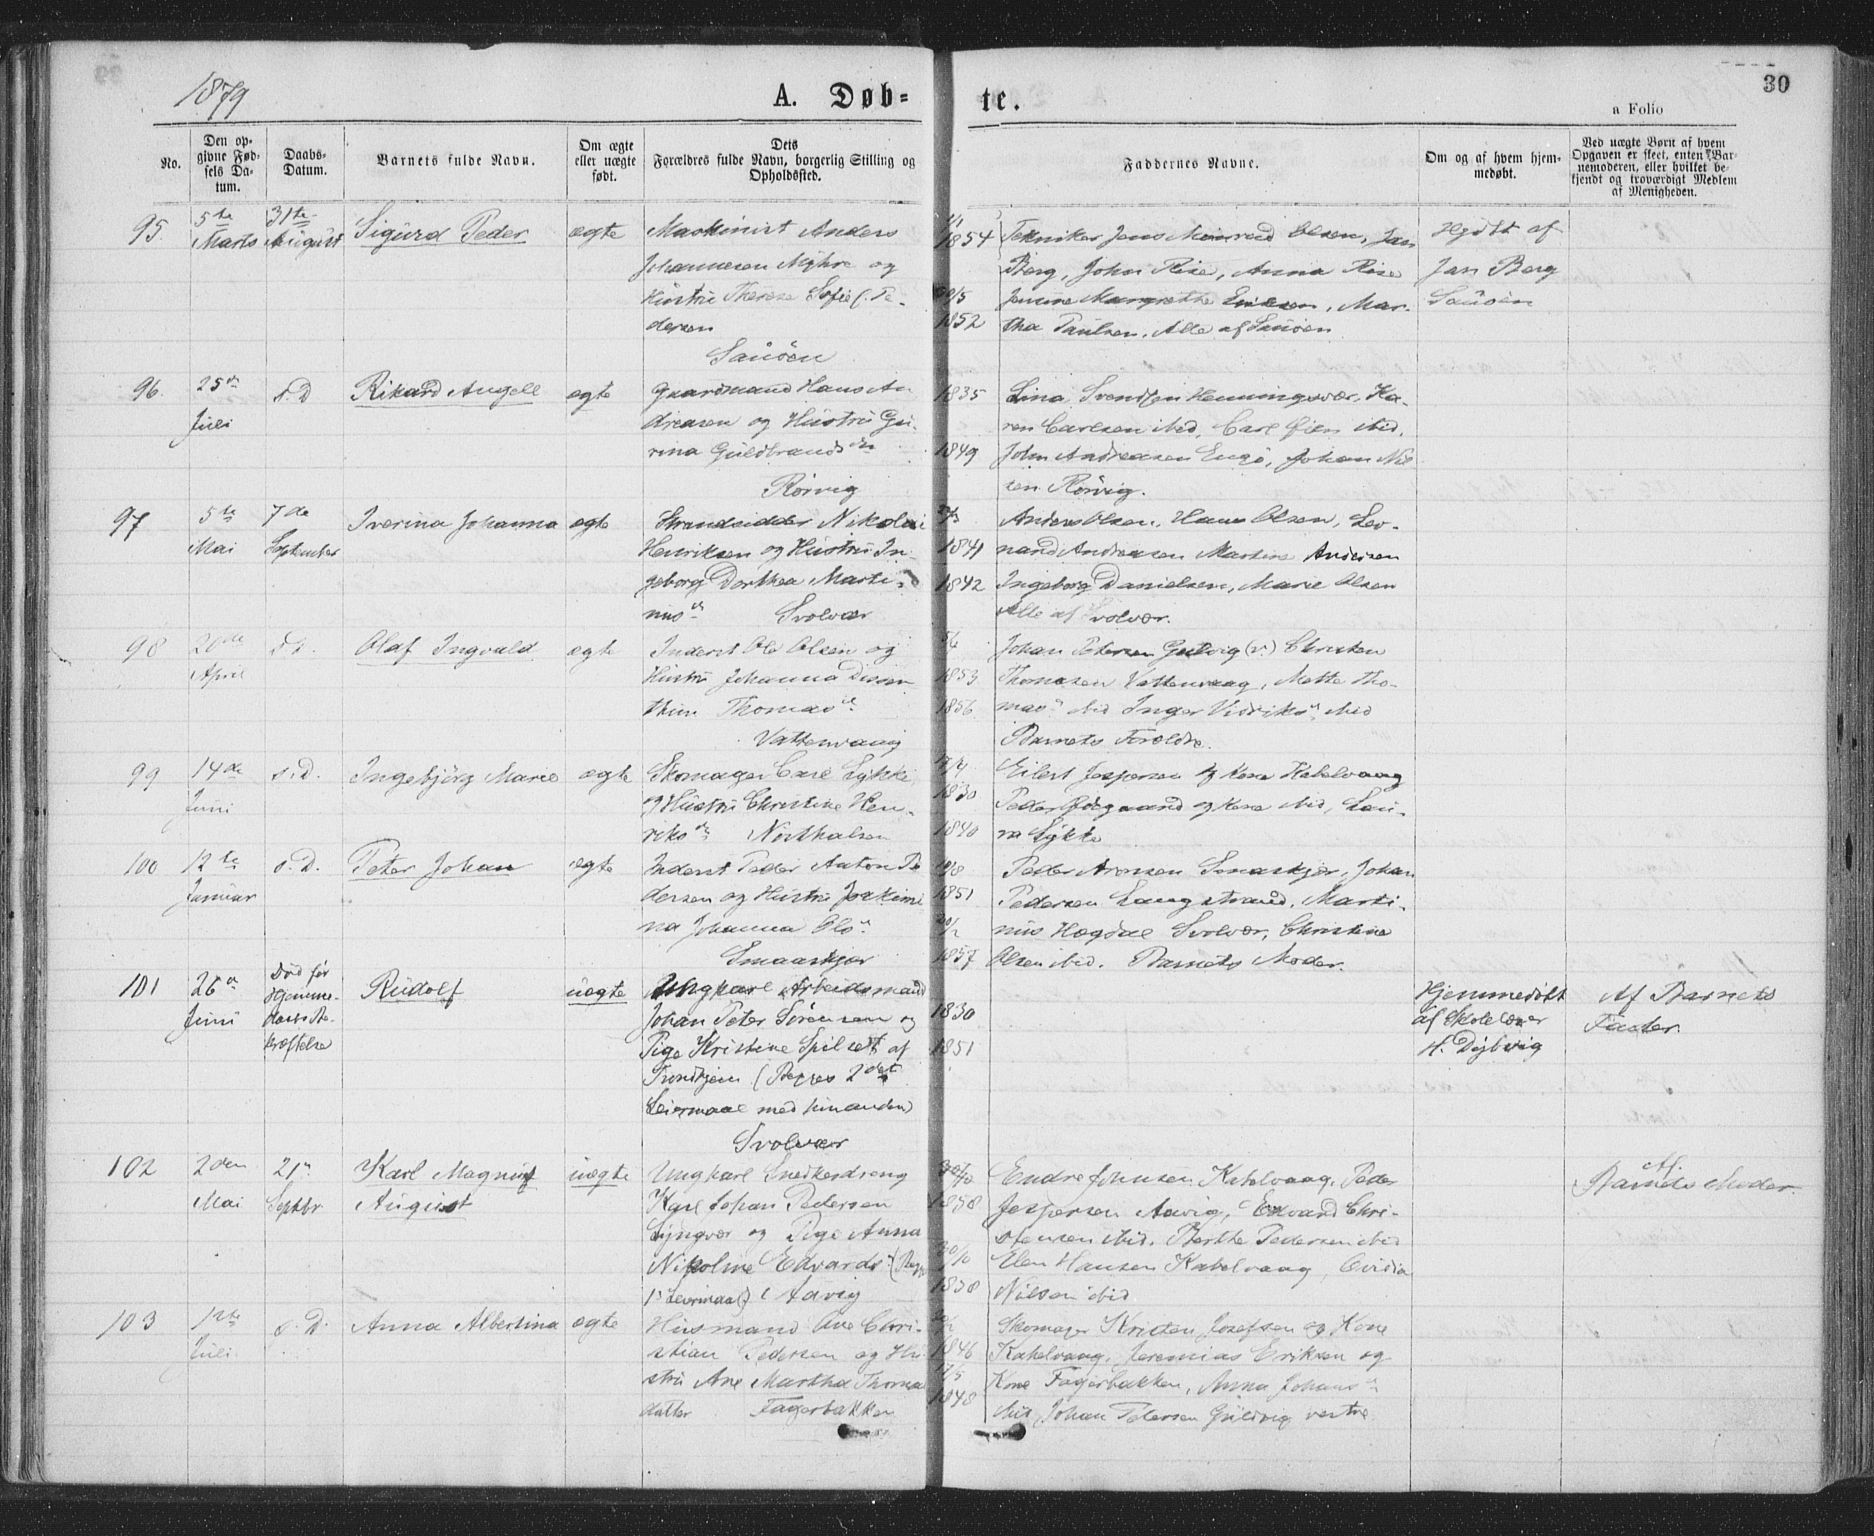 1879
A. Døb=
te.
30
a Folio
No.
Den op-
givne Fød-
sels Da-
tum.
Daabs-
Datum.
Barnets fulde Navn.
Om ægte
eller uægte
født.
Dets
Forældres fulde Navn, borgerlig Stilling og
Opholdssted.
Faddernes Navne.
Om og af hvem hjem-
medøbt.
Ved uægte Børn af hvem
Opgaven er skeet, enten Bar-
nemoderen, eller hvilket be-
kjendt og troværdigt Medlem
af Menigheden.
95
5te
Marts
31te
August
Sigurd Peder
ægte
Maskinist Anders
Johannesen Myhre og
Hustru Therese Sofie f. Pe-
dersen
Sauøen
1/1
1854
1852
Tekniker Jens Meinred Olsen, Jan
Berg, John Rise, Anna Rise
Jensine Margrethe Eriksen, Mar-
tha Paulsen, Alle af Sauøen
Hjdbt af
Jan Berg
Sauøen
96.
25de
Juli
s. D
Rikard Angell
ægte
Gaardmand Hans An-
dreasen og Hustru Gu-
rina Guldbrandsdr
Rørvig
1835
1849
Lina Svendsen Henningsvær, Ka-
ren Carlsen ibid, Carl Gien ibid,
John Andreasen Engø, Johan Niel
sen Rørvig.
97
5te
Mai
7de
September
Iverina Johanna
ægte
Strandsidder Nikolai
Henriksen og Hustru In-
geborg Dorthea Marti-
nusdr Svolvær
1841
1842
Anders Olsen, Hans Olsen, Leo-
nard Andreasen Martine Andersen
Ingeborg Danielsen, Marie Olsen
Alle af Svolvær.
98
20de
April
s. D.
Olaf Ingvald
ægte
Inderst Ole Olsen og
Hustru Johanna
Thomasdr
Vattervaag
1853
1856
Johan Petersen Gulvig (v.) Christen
Thomasen Vattervaag, Mette Tho-
masdr ibid Inger Vidriksdr ibid
Barnets Forældre.
99
14de
Juni
s. D.
Ingebjörg Marie
ægte
Skomager Carl Lykke
og Hustru Christine Hen-
riksdr Northalsen
1830
1840
Eilert Jespersen og Kone Kabelvaag
Peder Ødegaard og Kone ibid, Lau-
ra Lykke
100
12te
Januar
s. D.
Peter Johan
ægte
Inderst Peder Anton Pe
dersen og Hustru Joakimi
na Johanna Olsdr
Smaaskjær
1851
1857
Peder Aronsen Smaaskjær, Johan
Pedersen Langstrand, Marti-
nus Høgdal Svolvær, Christine
Olsen ibid. Barnets Moder.
101
26de
Juni
Død før
Hjemme-
daabs Be-
kræftelse
Rudolf
uægte
Ungkarl Arbeidsmand
Johan Peter Sörensen og
Pige Kristine Spilset af
Trondhjem (Begges 2det
Leiermaal med hinanden)
Svolvær
1830
1851
Hjemmedøbt
af Skolelærer
H. Dybvig
Af Barnets
Fader.
102
2den
Mai
21de
Septbr
Karl Magnus
August
uægte
Ungkarl Snedkerdreng
Karl Johan Pedersen
Lyngvær og Pige Anna
Nikoline Edvardsdr (Begges
1ste Leiermaal) Aavig
1858
1858
Endre Johnsen Kabelvaag, Peder
Jespersen Aavig, Edvard Chri-
stensen ibid. Berthe Pedersen ibid
Elen Hansen Kabelvaag, Ovidia
Nilsen ibid
Af
Barnets Moder.
103
1ste
Juli
s. D.
Anna Albertina
ægte
Husmand Ane Chri-
stian Pedersen og Hu-
stru Ane Martha Thomas
datter Fagerbakken
1846
1848
Skomager Kristen Josefsen og Kone
Kabelvaag, Jeremias Eriksen og
Kone Fagerbakken, Anna Johansdr
ibid, Johan Petersen Gulvig vestre